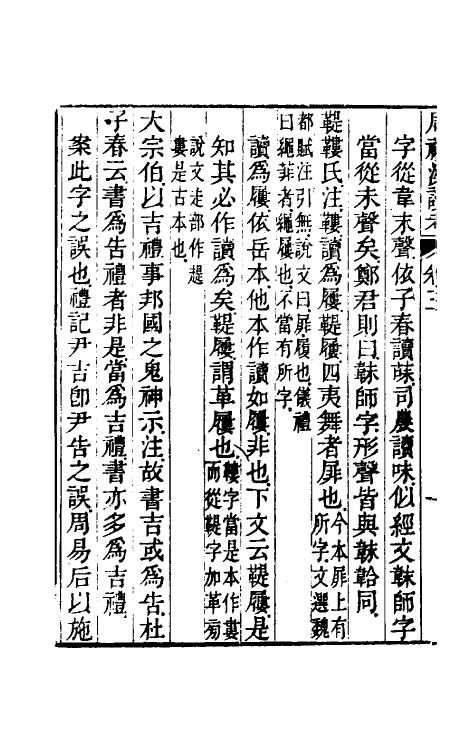 周禮漢讀考 卷三
字從韋末聲依子春讀菋司農讀味似經文韎師字
當從未聲矣鄭君則曰韎師字形聲皆與韎韐同
鞮鞻氏注鞻讀爲屨鞮屨四夷舞者屝也今本屝上有所字文選魏
都賦注引無說文曰屝履也儀禮
曰繩菲者繩屨也不當有所字
讀爲屨依岳本他本作讀如屨非也下文云鞮屨是
知其必作讀爲矣鞮屨謂革屨也鞻字當是本作婁而從鞮字加革㫄
說文走部作趧
婁是古本也
大宗伯以吉禮事邦國之鬼神示注故書吉或爲告杜
子春云書爲告禮者非是當爲吉禮書亦多爲吉禮
案此字之誤也禮記尹吉卽尹告之誤周易后以施